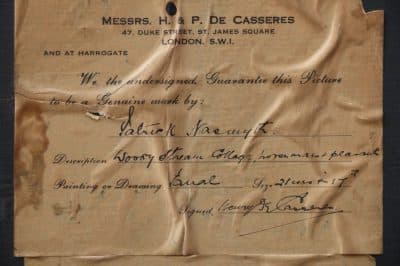 MESSRS. H. & P. DE CASSERES
47, DUKE STREET, ST. JAMES SQUARE
LONDON. S.W.1.
AND AT HARROGATE
We the undersigned, Guarantee this Picture
to be a Genuine work by:
Patrick Nasmyth
Description Woody Stream Cottage, horseman &
Painting or Drawing Size 21
Signed Henry De Casseres